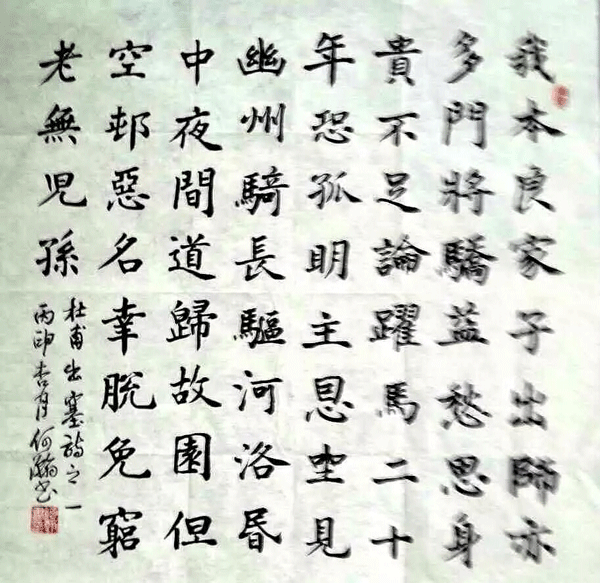 我本良家子出師亦
多門將驕益愁思身
貴不足論躍馬二十
年恐孤明主恩坐見
幽州騎長驅河洛昏
中夜間道歸故園但
空邨惡名幸脫免窮
老無兒孫
杜甫出塞詩之一
丙申杏月何瀚書